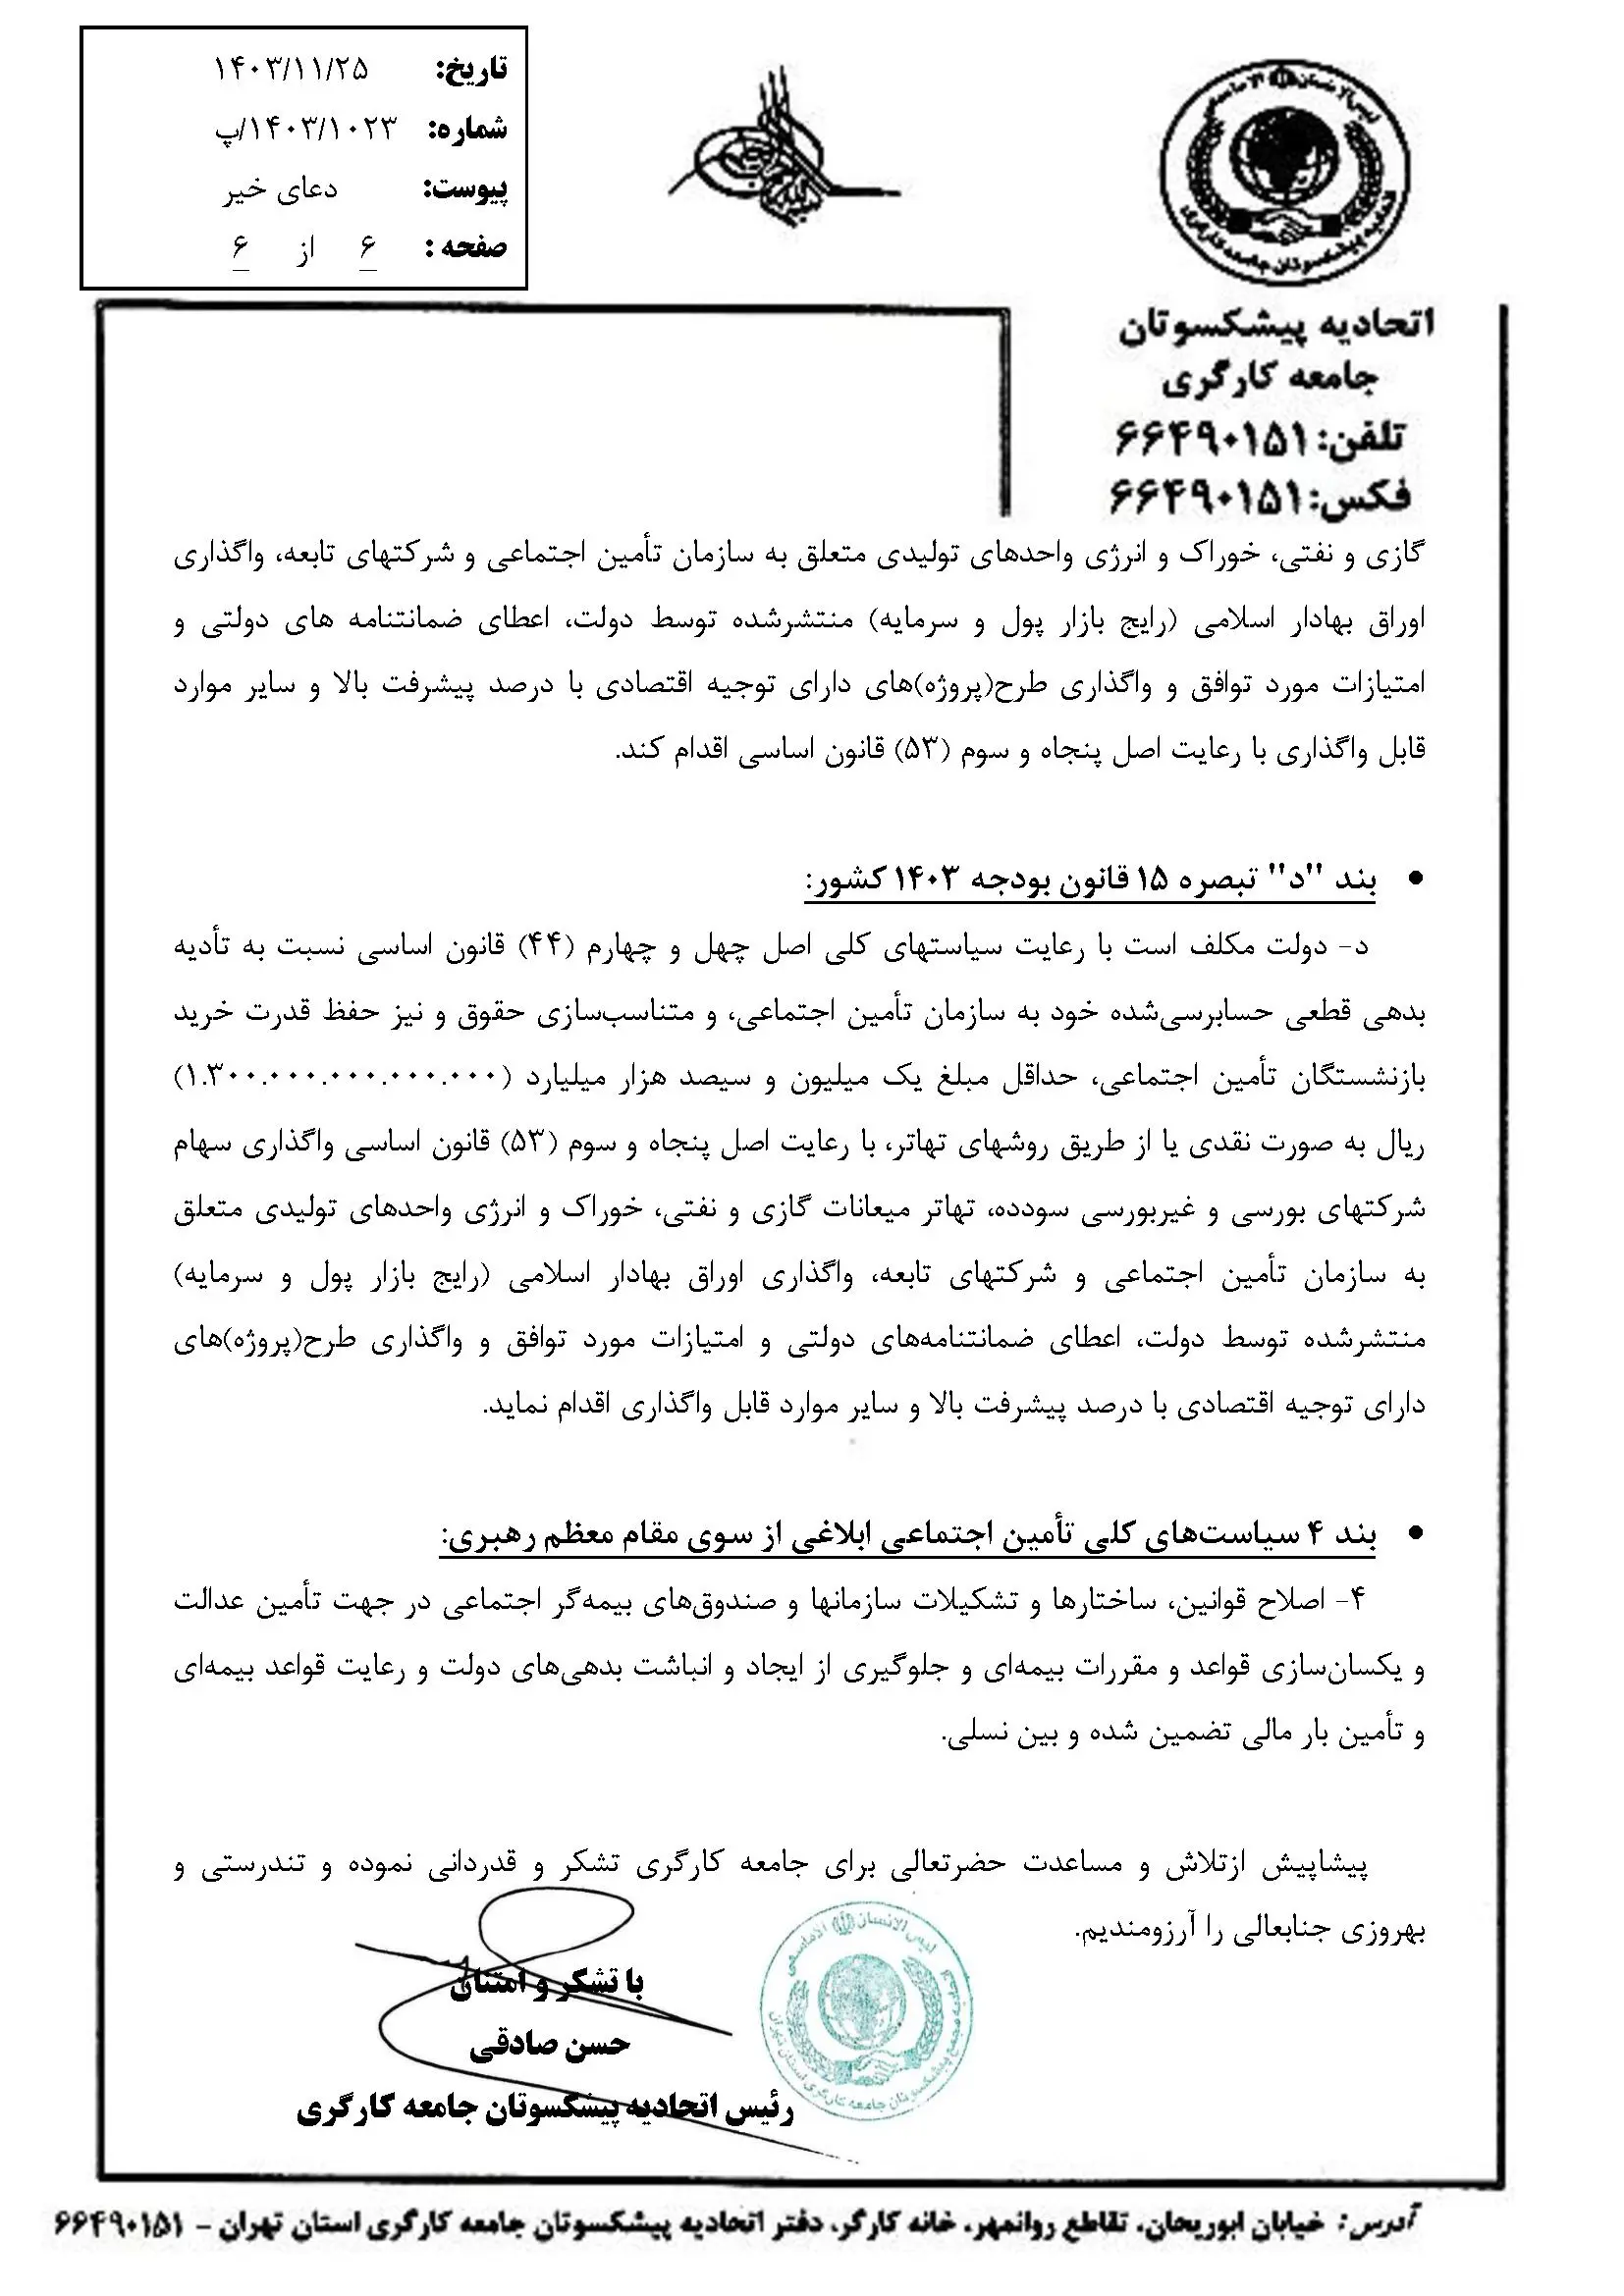 تاریخ: ۱۴۰۳/۱۱/۲۵
شماره: ۱۴۰۳/۱۰۲۳/پ
پیوست: دعای خیر
صفحه : ۶ از ۶
اتحادیه پیشکسوتان
جامعه کارگری
تلفن: ۶۶۴۹۰۱۵۱
فکس: ۶۶۴۹۰۱۵۱
گازی و نفتی، خوراک و انرژی واحدهای تولیدی متعلق به سازمان تأمین اجتماعی و شرکتهای تابعه، واگذاری
اوراق بهادار اسلامی (رایج بازار پول و سرمایه) منتشرشده توسط دولت، اعطای ضمانتنامه های دولتی و
امتیازات مورد توافق و واگذاری طرح(پروژه)های دارای توجیه اقتصادی با درصد پیشرفت بالا و سایر موارد
قابل واگذاری با رعایت اصل پنجاه و سوم (۵۳) قانون اساسی اقدام کند.
• بند "د" تبصره ۱۵ قانون بودجه ۱۴۰۳ کشور:
د- دولت مکلف است با رعایت سیاستهای کلی اصل چهل و چهارم (۴۴) قانون اساسی نسبت به تأدیه
بدهی قطعی حسابرسی‌شده خود به سازمان تأمین اجتماعی، و متناسب‌سازی حقوق و نیز حفظ قدرت خرید
بازنشستگان تأمین اجتماعی، حداقل مبلغ یک میلیون و سیصد هزار میلیارد (۱.۳۰۰.۰۰۰.۰۰۰.۰۰۰.۰۰۰)
ریال به صورت نقدی یا از طریق روشهای تهاتر، با رعایت اصل پنجاه و سوم (۵۳) قانون اساسی واگذاری سهام
شرکتهای بورسی و غیربورسی سودده، تهاتر میعانات گازی و نفتی، خوراک و انرژی واحدهای تولیدی متعلق
به سازمان تأمین اجتماعی و شرکتهای تابعه، واگذاری اوراق بهادار اسلامی (رایج بازار پول و سرمایه)
منتشرشده توسط دولت، اعطای ضمانتنامه‌های دولتی و امتیازات مورد توافق و واگذاری طرح(پروژه)های
دارای توجیه اقتصادی با درصد پیشرفت بالا و سایر موارد قابل واگذاری اقدام نماید.
• بند ۴ سیاست‌های کلی تأمین اجتماعی ابلاغی از سوی مقام معظم رهبری:
۴- اصلاح قوانین، ساختارها و تشکیلات سازمانها و صندوق‌های بیمه‌گر اجتماعی در جهت تأمین عدالت
و یکسان‌سازی قواعد و مقررات بیمه‌ای و جلوگیری از ایجاد و انباشت بدهی‌های دولت و رعایت قواعد بیمه‌ای
و تأمین بار مالی تضمین شده و بین نسلی.
پیشاپیش ازتلاش و مساعدت حضرتعالی برای جامعه کارگری تشکر و قدردانی نموده و تندرستی و
بهروزی جنابعالی را آرزومندیم.
با تشکر و امتنان
حسن صادقی
رئیس اتحادیه پیشکسوتان جامعه کارگری
آدرس: خیابان ابوریحان، تقاطع روانمهر، خانه کارگر، دفتر اتحادیه پیشکسوتان جامعه کارگری استان تهران – ۶۶۴۹۰۱۵۱